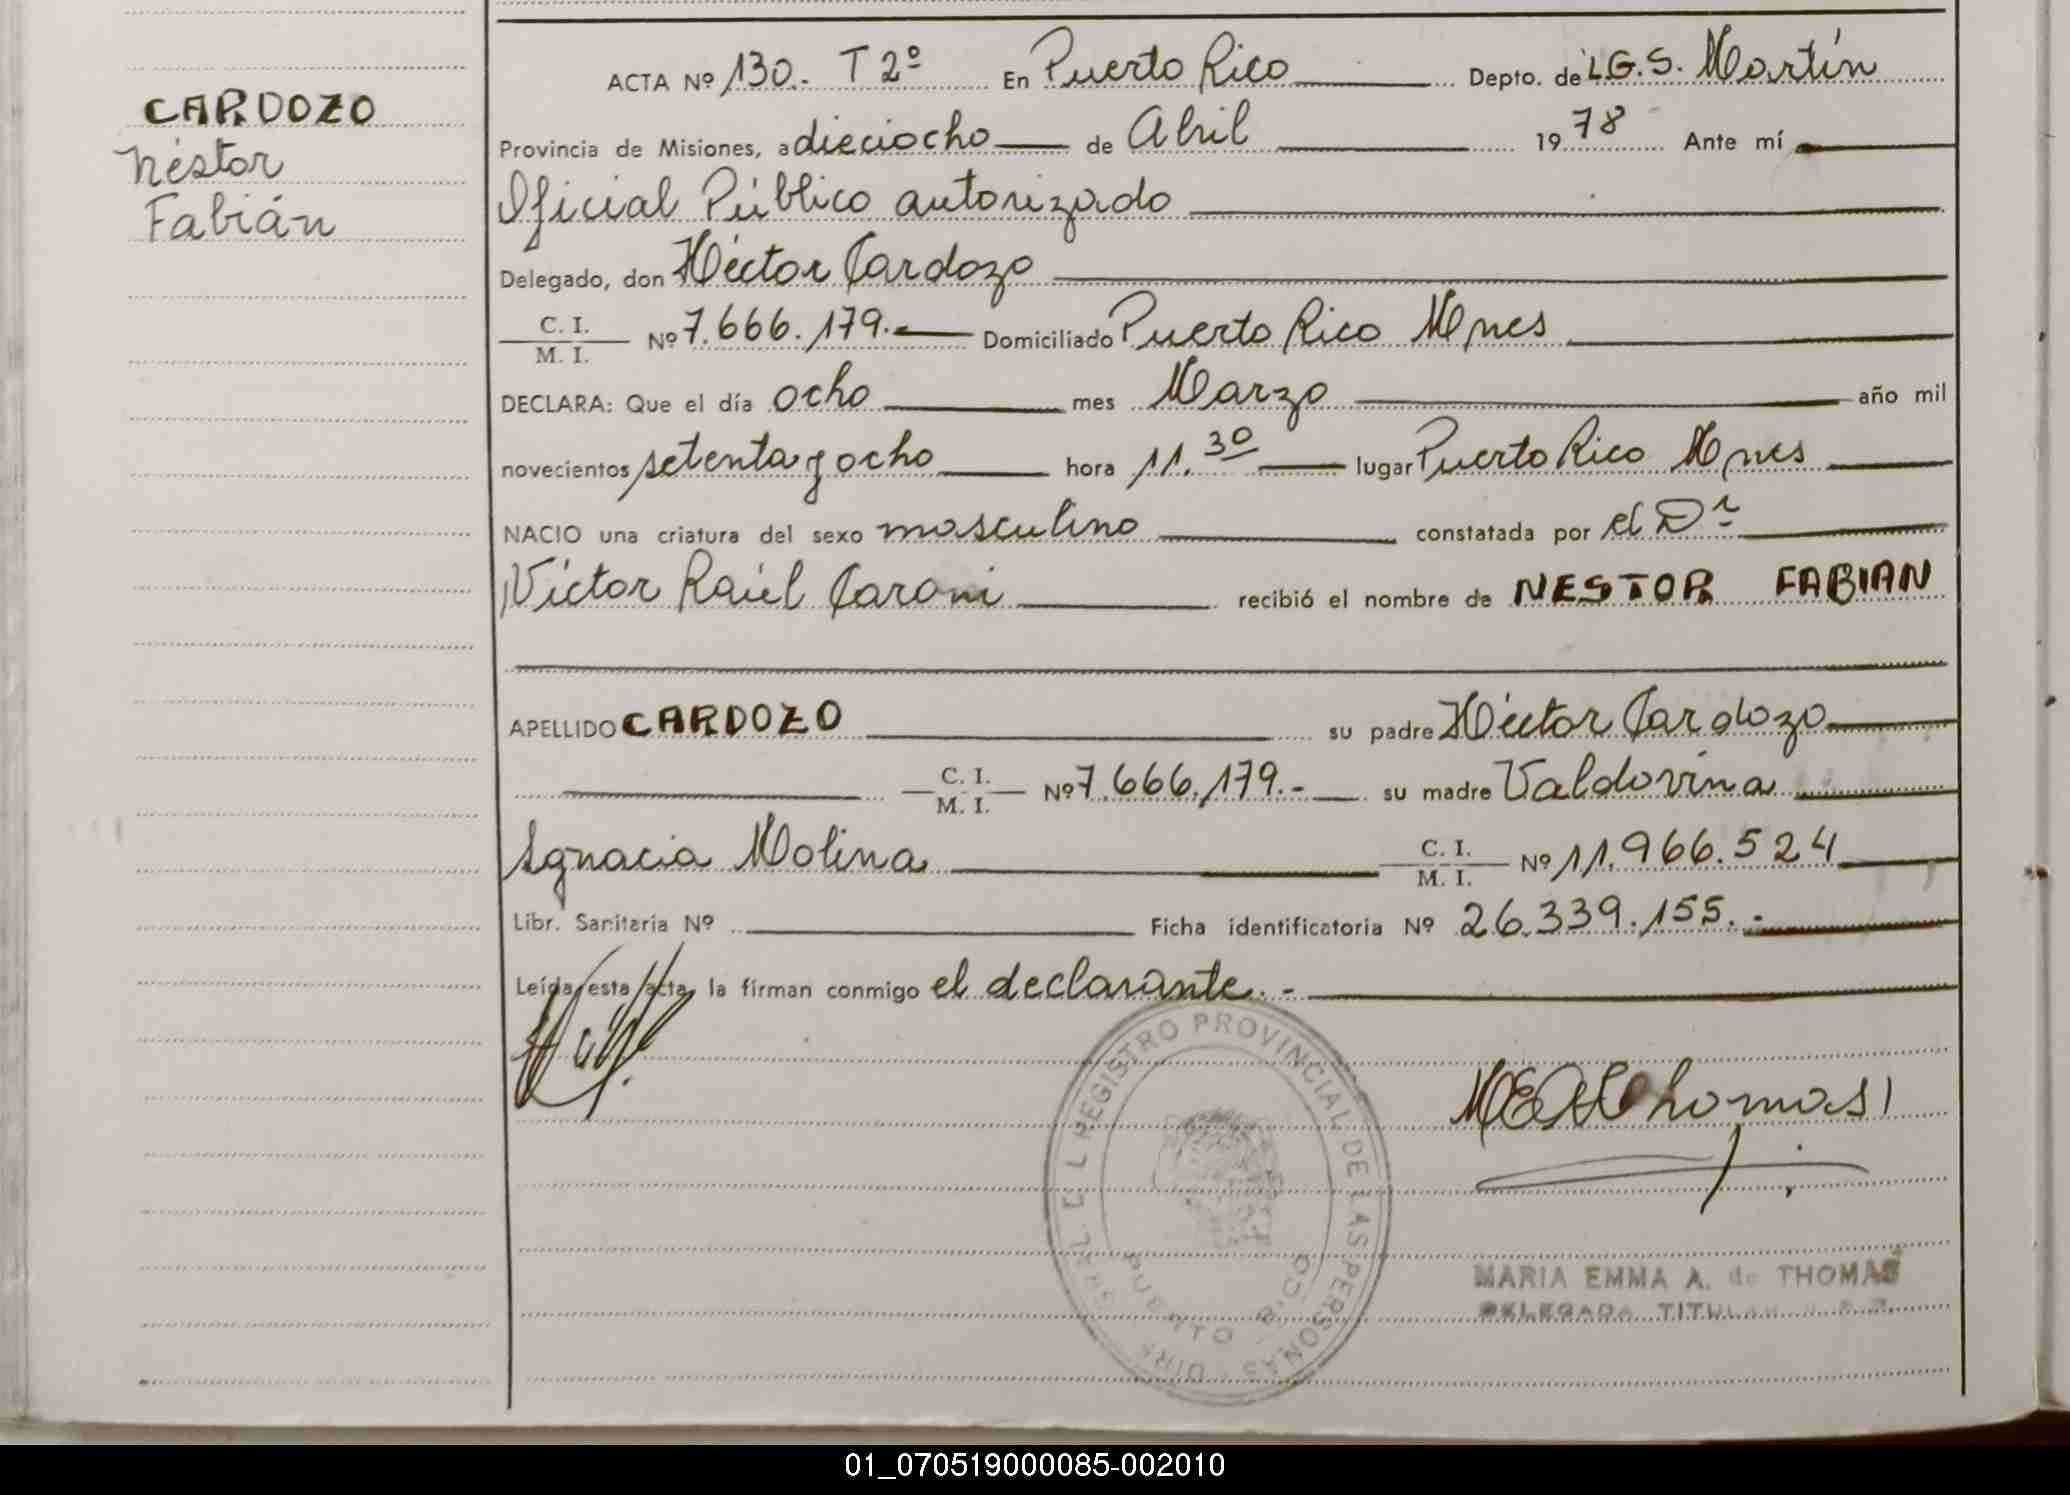 CARDOZO
Néstor
Fabián
ACTA Nº 130.- T 2º En Puerto Rico Depto. de L.G.S. Martín
Provincia de Misiones, a dieciocho de Abril 1978 Ante mí
Oficial Público autorizado
Delegado, don Héctor Cardozo
C. I.
M. I. Nº 7.666.179.- Domiciliado Puerto Rico Mnes
DECLARA: Que el día ocho mes Marzo año mil
novecientos setenta y ocho hora 11.30 lugar Puerto Rico Mnes
NACIO una criatura del sexo masculino constatada por el Dr
Víctor Raúl recibió el nombre de NESTOR FABIAN
APELLIDO CARDOZO su padre Héctor Cardozo
C. I.
M. I. Nº 7.666.179.- su madre Valdovina
Ignacia Molina C. I.
M. I. Nº 11.966.524
Libr. Sanitaria Nº Ficha identificatoria Nº 26.339.155.-
Leída esta acta, la firman conmigo el declarante.-
REGISTRO PROVINCIAL DE LAS PERSONAS
PUERTO RICO
MARIA EMMA A. de THOMAS
DELEGADA TITULAR
01_070519000085-002010